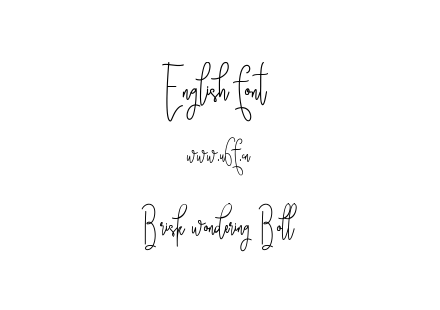 English font
www.ubf.cn
Brisk wondering Boll